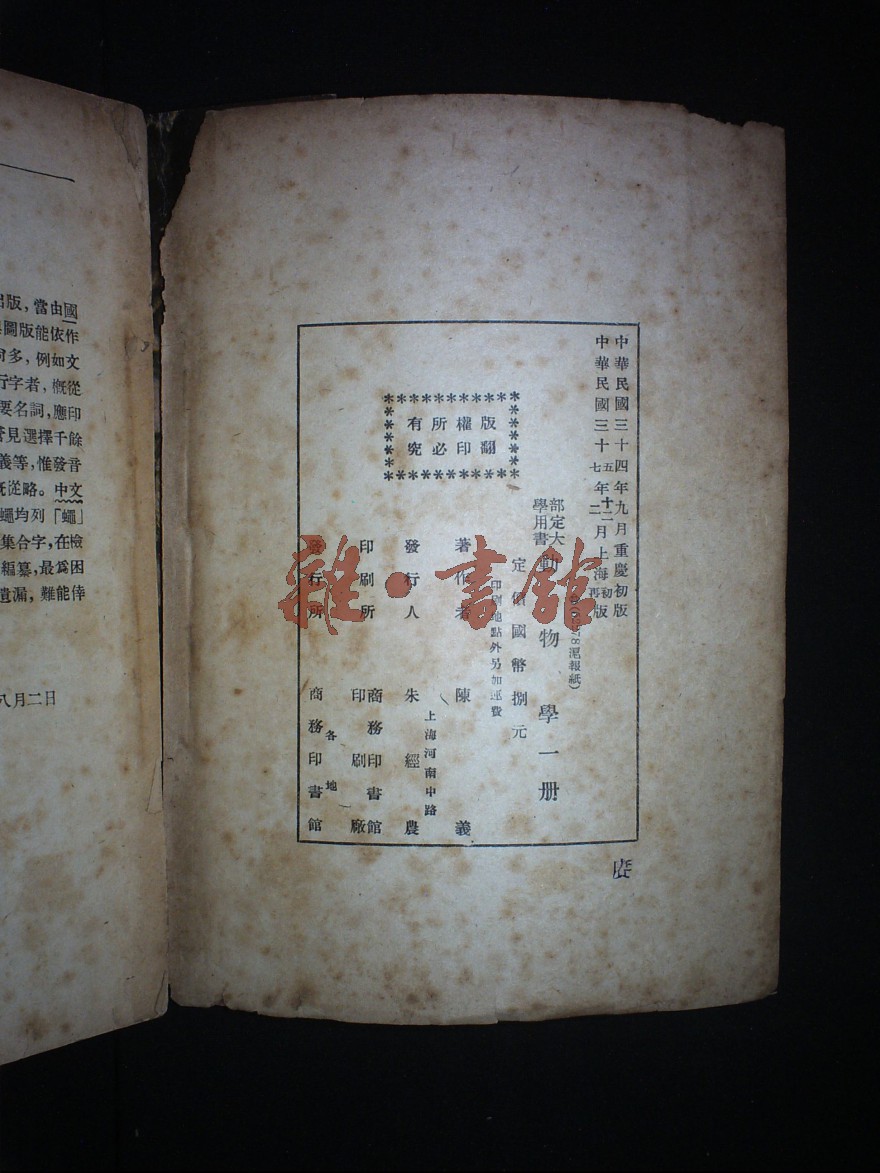 出版,當由國
圖版能依作
多,例如文
行字者,概從
要名詞,應印
見選擇千餘
義等,惟發音
從略。中文
蠅均列「蠅」
集合字,在檢
編纂,最爲困
遺漏,難能倖
八月二日
中華民國三十四年九月重慶初版
中華民國三十五年十二月上海初版
七 二 再
滬報紙)
部定大
學用書
動物學一册
定價國幣捌元
印刷地點外另加運費
版權所有
翻印必究
著作者 陳義
上海河南中路
發行人 朱經農
印刷所 商務印書館
印刷廠
各地
發行所 商務印書館
雜·書館